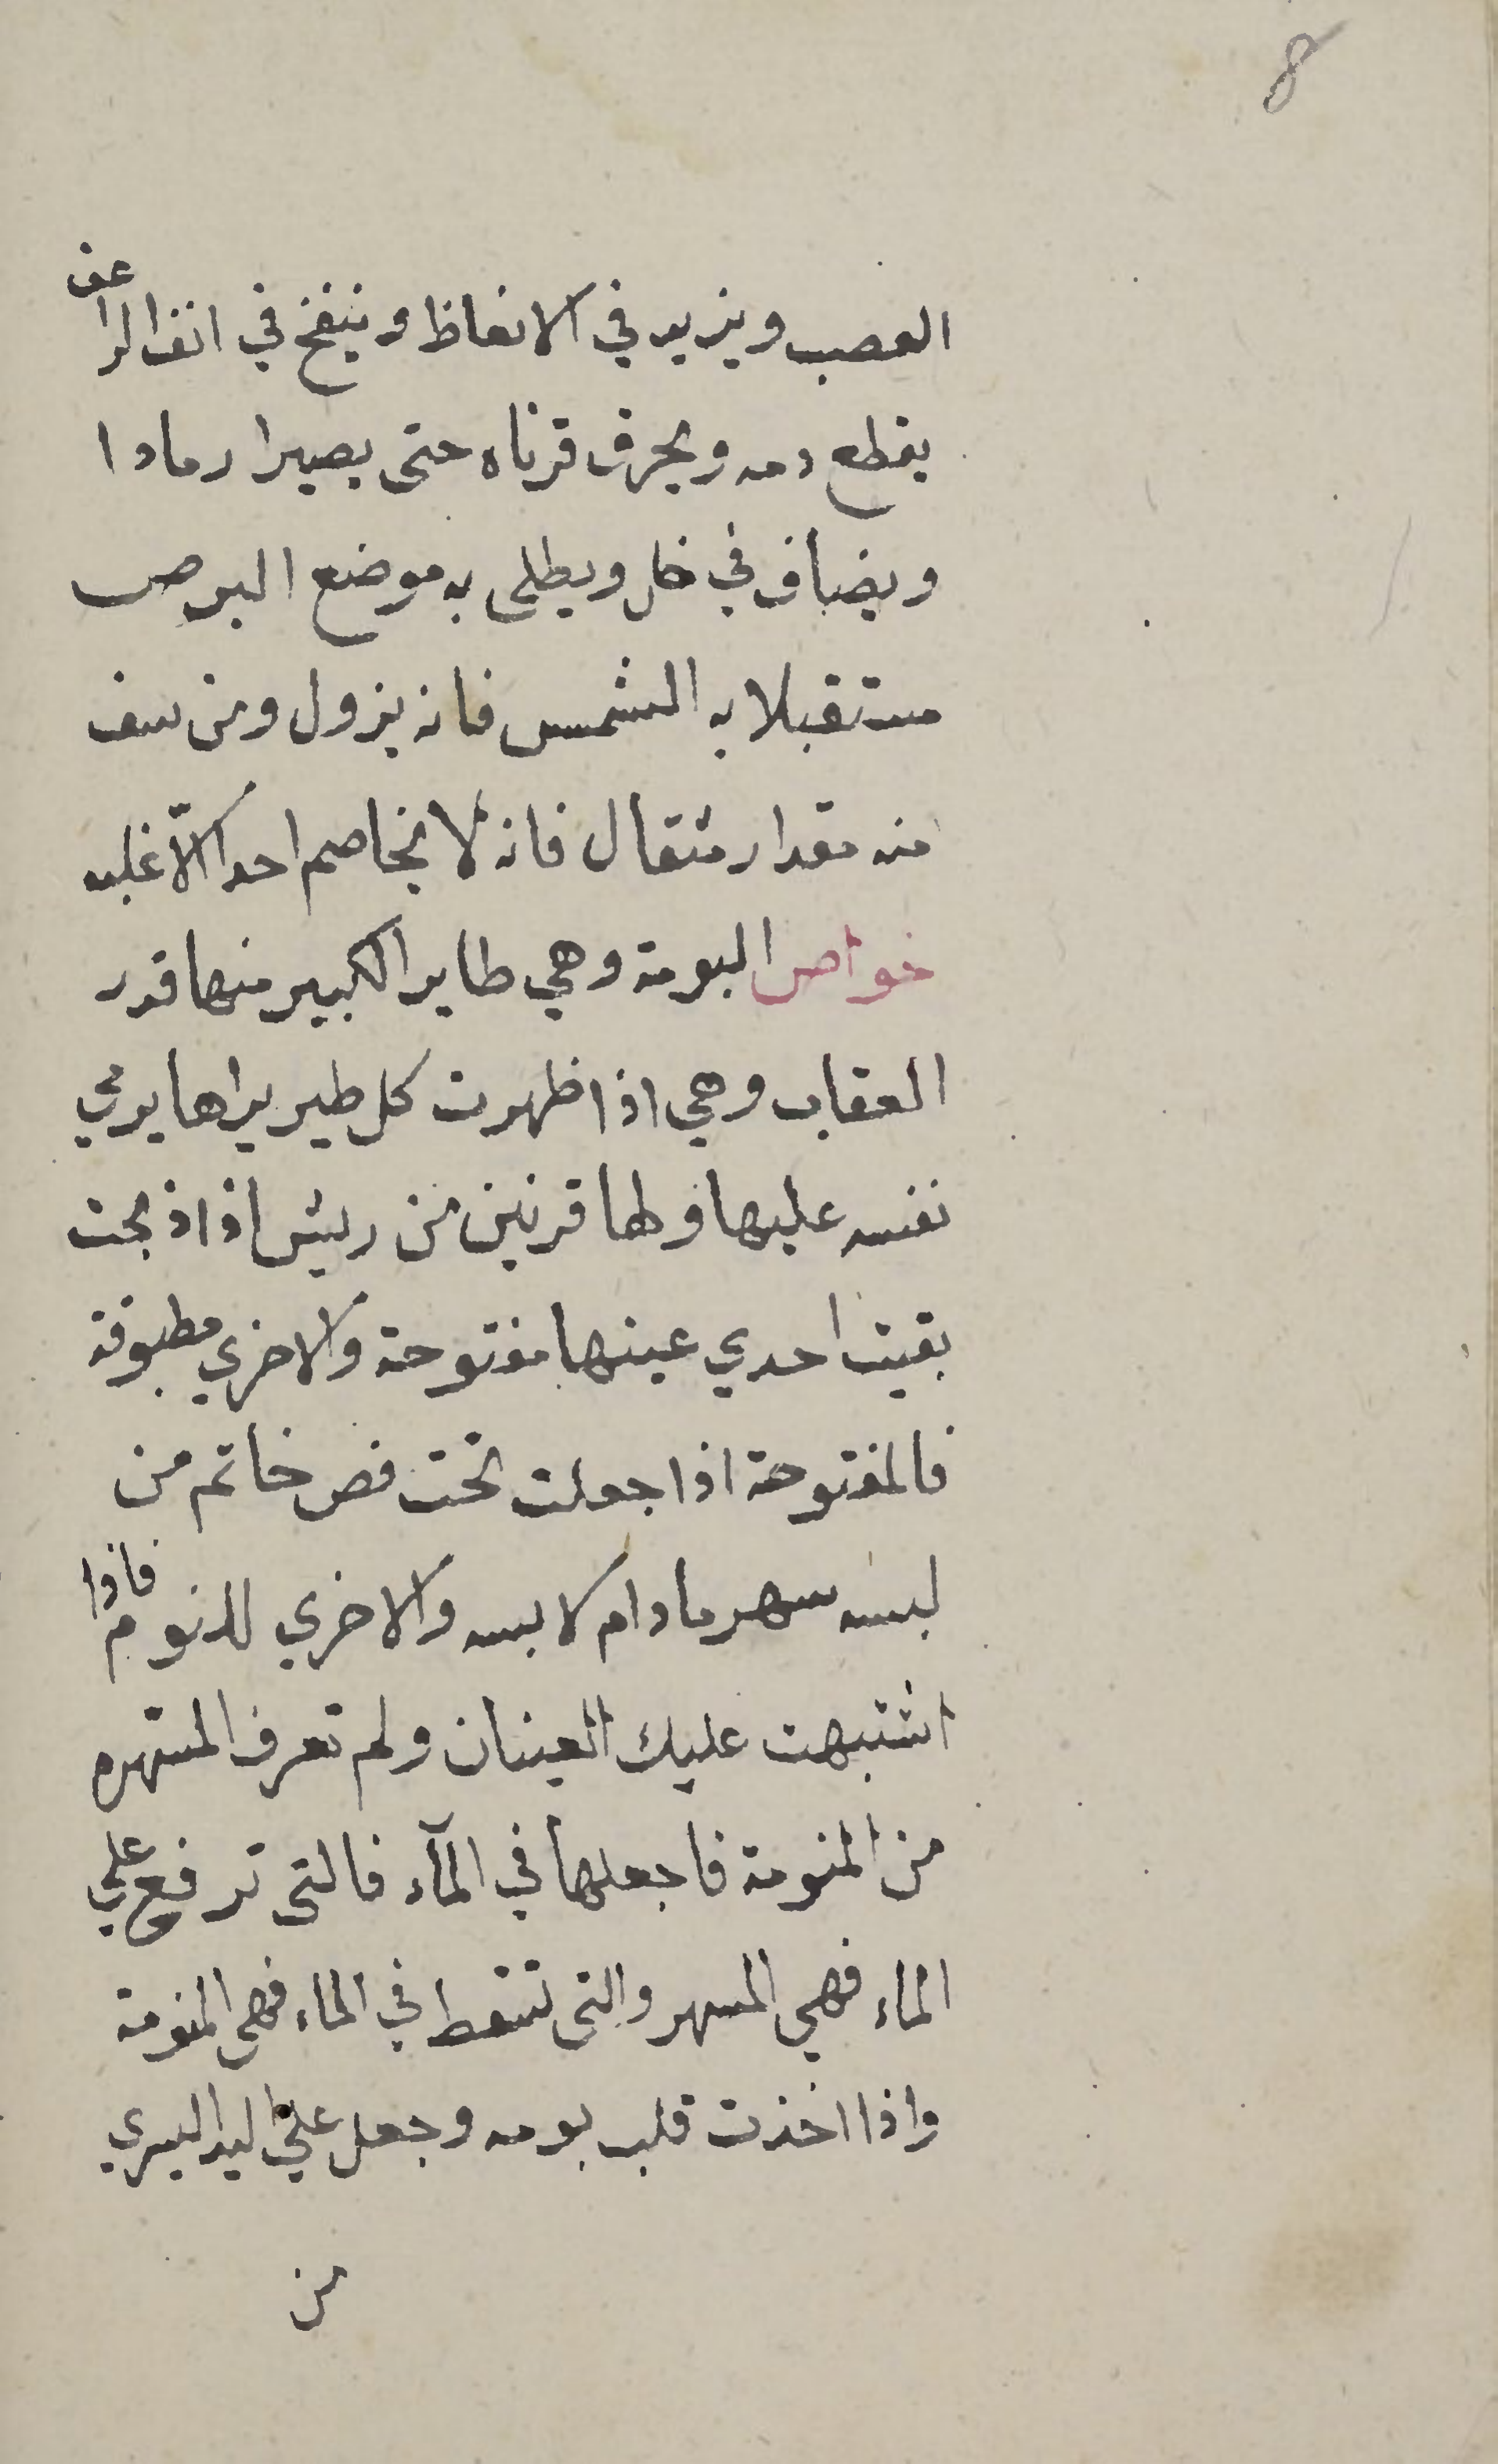 8
العصب ويزيد في الانعاظ وينفخ في انف الراعف
يقطع دمه ويحرق قرناه حتى يصيرا رمادا
ويضاف في خل ويطلى به موضع البرص
مستقبلا به الشمس فانه يزول ومن سف
منه مقدار مثقال فانه لا يخاصم احدا الّا غلبه
خواص البومة وهي طاير الكبير منها قدر
العقاب وهي اذا ظهرت كل طير يراها يرمي
نفسه عليها ولها قرنين من ريش اذا ذبحت
بقيت احدي عينها مفتوحة والاخري مطبوقة
فالمفتوحة اذا جعلت تحت فص خاتم من
لبسه سهر ما دام لابسه والاخري للنوم فاذا
اشتبهت عليك العينان ولم تعرف المسهره
من المنومة فاجعلها في المآء فالتى ترفع علي
الماء فهي المسهر والتى تسقط في الماء فهى المنومة
واذا اخذت قلب بومه وجعل علي اليد اليسري
من